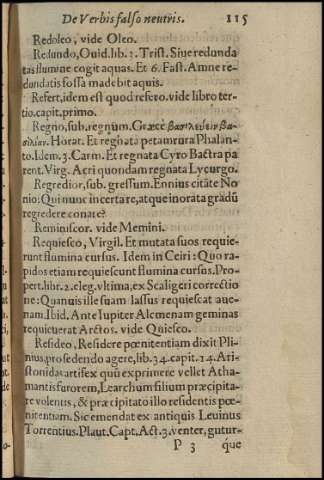 De Verbis falso neutris. 115
Redoleo, vide Oleo.
Redundo, Ouid. lib. 2. Trist. Siue redunda
tas flumine cogit aquas. Et 6. Fast. Amne re-
dundatis fossa madebit aquis.
Refert, idem est quod refero. vide libro ter-
tio. capit. primo.
Regno, sub. regnum. Græcè βασιλεύειν βα-
σιλείαν. Horat. Et regnata petam rura Phalan-
to. Idem. 3. Carm. Et regnata Cyro Bactra pa
rent. Virg. Acri quondam regnata Lycurgo.
Regredior, sub. gressum. Ennius citāte No
nio: Qui nunc incerta re, atque inorata gradū
regredere conare?
Reminiscor. vide Memini.
Requiesco, Virgil. Et mutata suos requie-
runt flumina cursus. Idem in Ceiri: Quo ra-
pidos etiam requiescunt flumina cursus. Pro-
pert. libr. 2. eleg. vltima, ex Scaligeri correctio
ne: Quamuis ille suam lassus requiescat aue-
nam. Ibid. Ante Iupiter Alcmenam geminas
requieuerat Arctos. vide Quiesco.
Resideo, Residere pœnitentiam dixit Pli-
nius, pro sedendo agere, lib. 34. capit. 14. Ari-
stonidas artifex quū exprimere vellet Atha-
mantis furorem, Learchum filium præcipita-
re volentis, & præcipitato illo residentis pœ-
nitentiam. Sic emendat ex antiquis Leuinus
Torrentius. Plaut. Capt. Act. 3. venter, gutur-
P 3 que